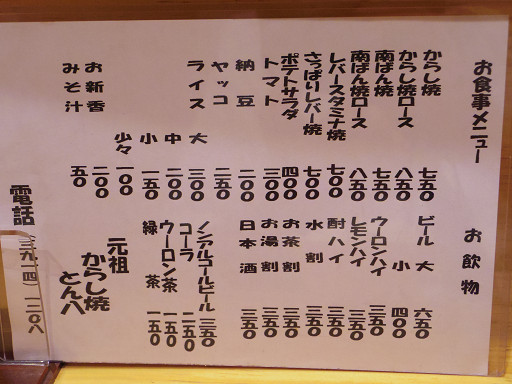 お食事メニュー
からし焼 七五〇
からし焼ロース 八五〇
南ばん焼 七五〇
南ばん焼ロース 八五〇
レバースタミナ焼 七〇〇
さっぱりレバー焼 七〇〇
ポテトサラダ 四〇〇
トマト 三〇〇
納豆 二〇〇
ヤッコ 二五〇
ライス 大 三〇〇
中 二〇〇
小 一五〇
少々 一〇〇
お新香 二〇〇
みそ汁 五〇
お飲物
ビール 大 六五〇
小 四〇〇
ウーロンハイ 三五〇
レモンハイ 三五〇
酎ハイ 三五〇
水割 三五〇
お茶割 三五〇
お湯割 三五〇
日本酒 三五〇
ノンアルコールビール 三五〇
コーラ 二五〇
ウーロン茶 一五〇
緑茶 一五〇
元祖
からし焼
とん八
電話 三九一四)一二〇八